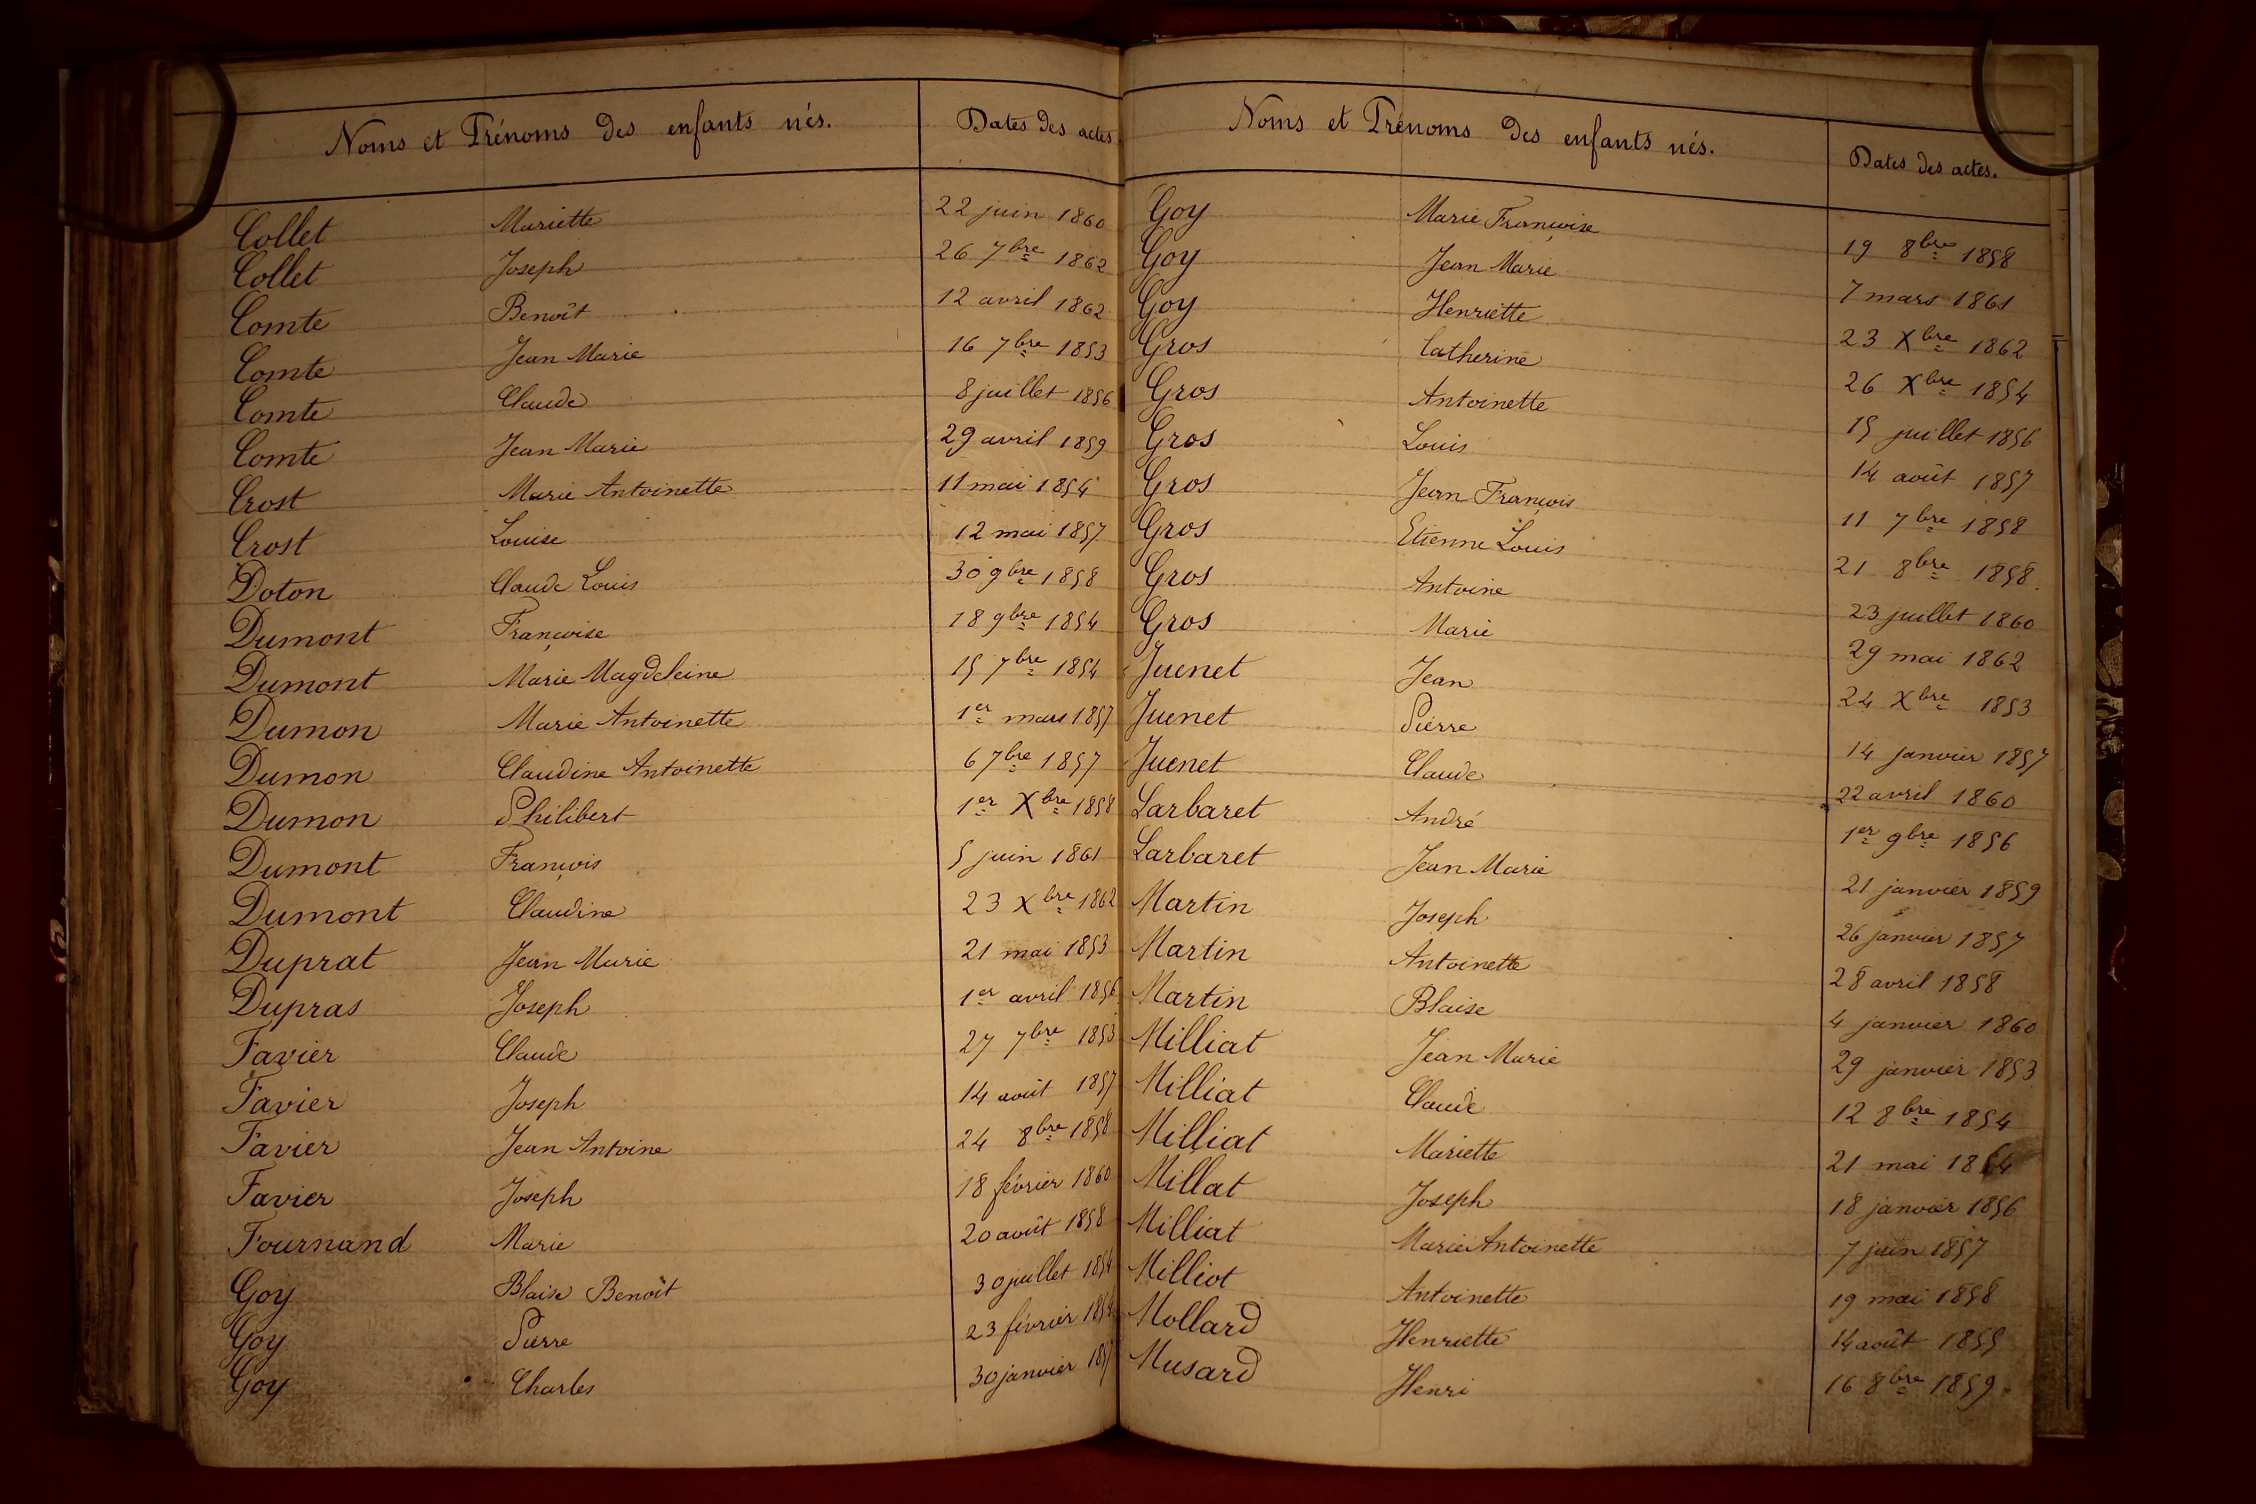 Noms et Prénoms des enfants nés. Dates des actes
Collet Mariette 22 juin 1860
Collet Joseph 26 7bre 1862
Comte Benoît 12 avril 1862
Comte Jean Marie 16 7bre 1853
Comte Claude 8 juillet 1856
Comte Jean Marie 29 avril 1859
Crost Marie Antoinette 11 mai 1854
Crost Louise 12 mai 1857
Doton Claude Louis 30 9bre 1858
Dumont Françoise 18 9bre 1854
Dumont Marie Magdeleine 15 7bre 1854
Dumon Marie Antoinette 1er mars 1857
Dumon Claudine Antoinette 6 7bre 1857
Dumon Philibert 1er Xbre 1858
Dumont François 5 juin 1861
Dumont Claudine 23 Xbre 1862
Duprat Jean Marie 21 mai 1853
Dupras Joseph 1er avril 1856
Favier Claude 27 7bre 1853
Favier Joseph 14 août 1857
Favier Jean Antoine 24 8bre 1858
Favier Joseph 18 février 1860
Fournand Marie 20 août 1858
Goy Blaise Benoît 30 juillet 1854
Goy Pierre 23 février
Goy Charles 30 janvier 1857
Noms et Prénoms des enfants nés. Dates des actes.
Goy Marie Françoise 19 8bre 1858
Goy Jean Marie 7 mars 1861
Goy Henriette 23 Xbre 1862
Gros Catherine 26 Xbre 1854
Gros Antoinette 15 juillet 1856
Gros Louis 14 août 1857
Gros Jean François 11 7bre 1858
Gros Etienne Louis 21 8bre 1858.
Gros Antoine 23 juillet 1860
Gros Marie 29 mai 1862
Juenet Jean 24 Xbre 1853
Juenet Pierre 14 janvier 1857
Juenet Claude 22 avril 1860
Larbaret André 1er 9bre 1856
Larbaret Jean Marie 21 janvier 1859
Martin Joseph 26 janvier 1857
Martin Antoinette 28 avril 1858
Martin Blaise 4 janvier 1860
Milliat Jean Marie 29 janvier 1853
Milliat Claude 12 8bre 1854
Milliat Mariette 21 mai 1854
Millat Joseph 18 janvier 1856
Milliat Marie Antoinette 7 juin 1857
Milliot Antoinette 19 mai 1858
Mollard Henriette 14 août 1855
Musard Henri 16 8bre 1859.